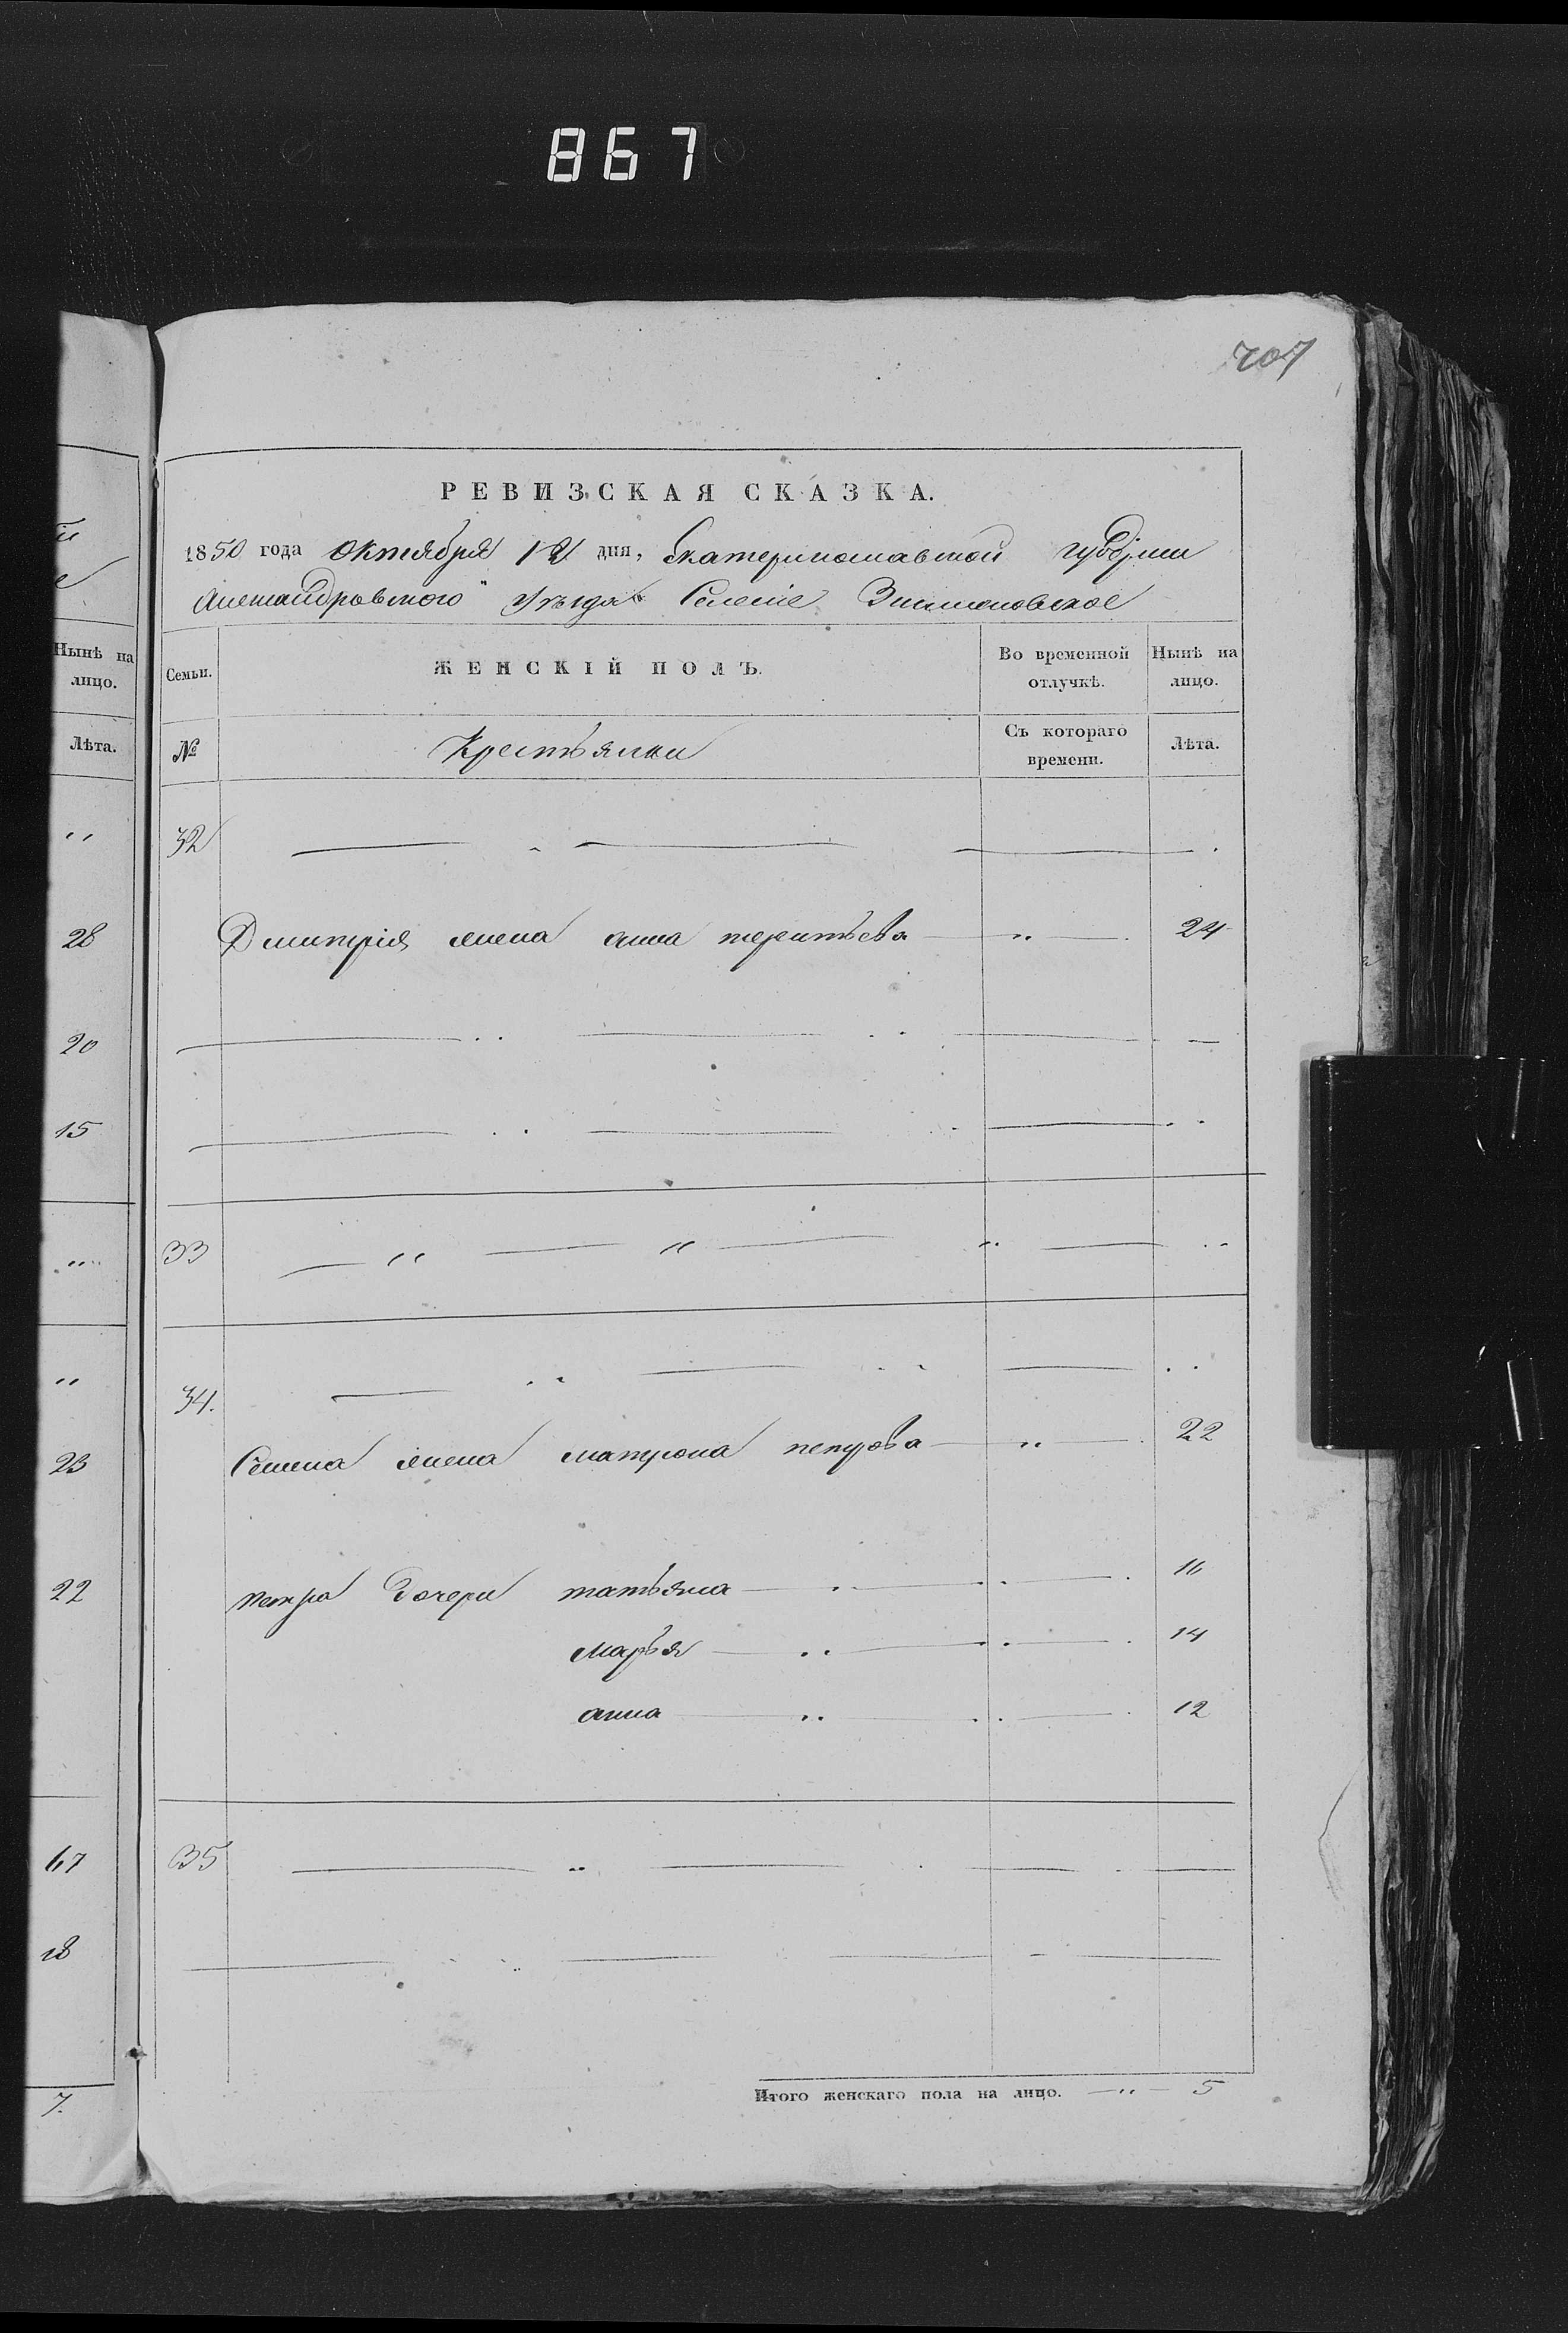 867
707
РЕВИЗСКАЯ СКАЗКА.
1850 года Октября 12 дня, Екатеринославской губерніи
Александровского Уѣзда Селеніе
Нынѣ на лицо.
Лѣта.
Семьи. ЖЕНСКІЙ ПОЛЪ. Во временной отлучкѣ. Нынѣ на лицо.
№ Крестьянки Съ котораго времени. Лѣта.
" 32 — " —
28 Дмитрія жена анна терентьева — " — 24
20
15
" 33 — " — " — " — "
" 34. — " — " — "
23 Семена жена матрона петрова — " — 22
22 петра дочери татьяна — " — 16
марья — " — " — 14
анна — " — " — 12
67 35 — " —
18
7. Итого женскаго пола на лицо. — " — 5